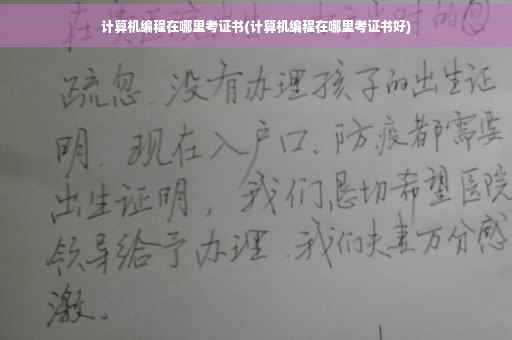 计算机编程在哪里考证书(计算机编程在哪里考证书好)
疏忽、没有办理孩子的出生证
明、现在入户口、防疫都需要
出生证明，我们恳切希望医院
领导给予办理、我们夫妻万分感
激。